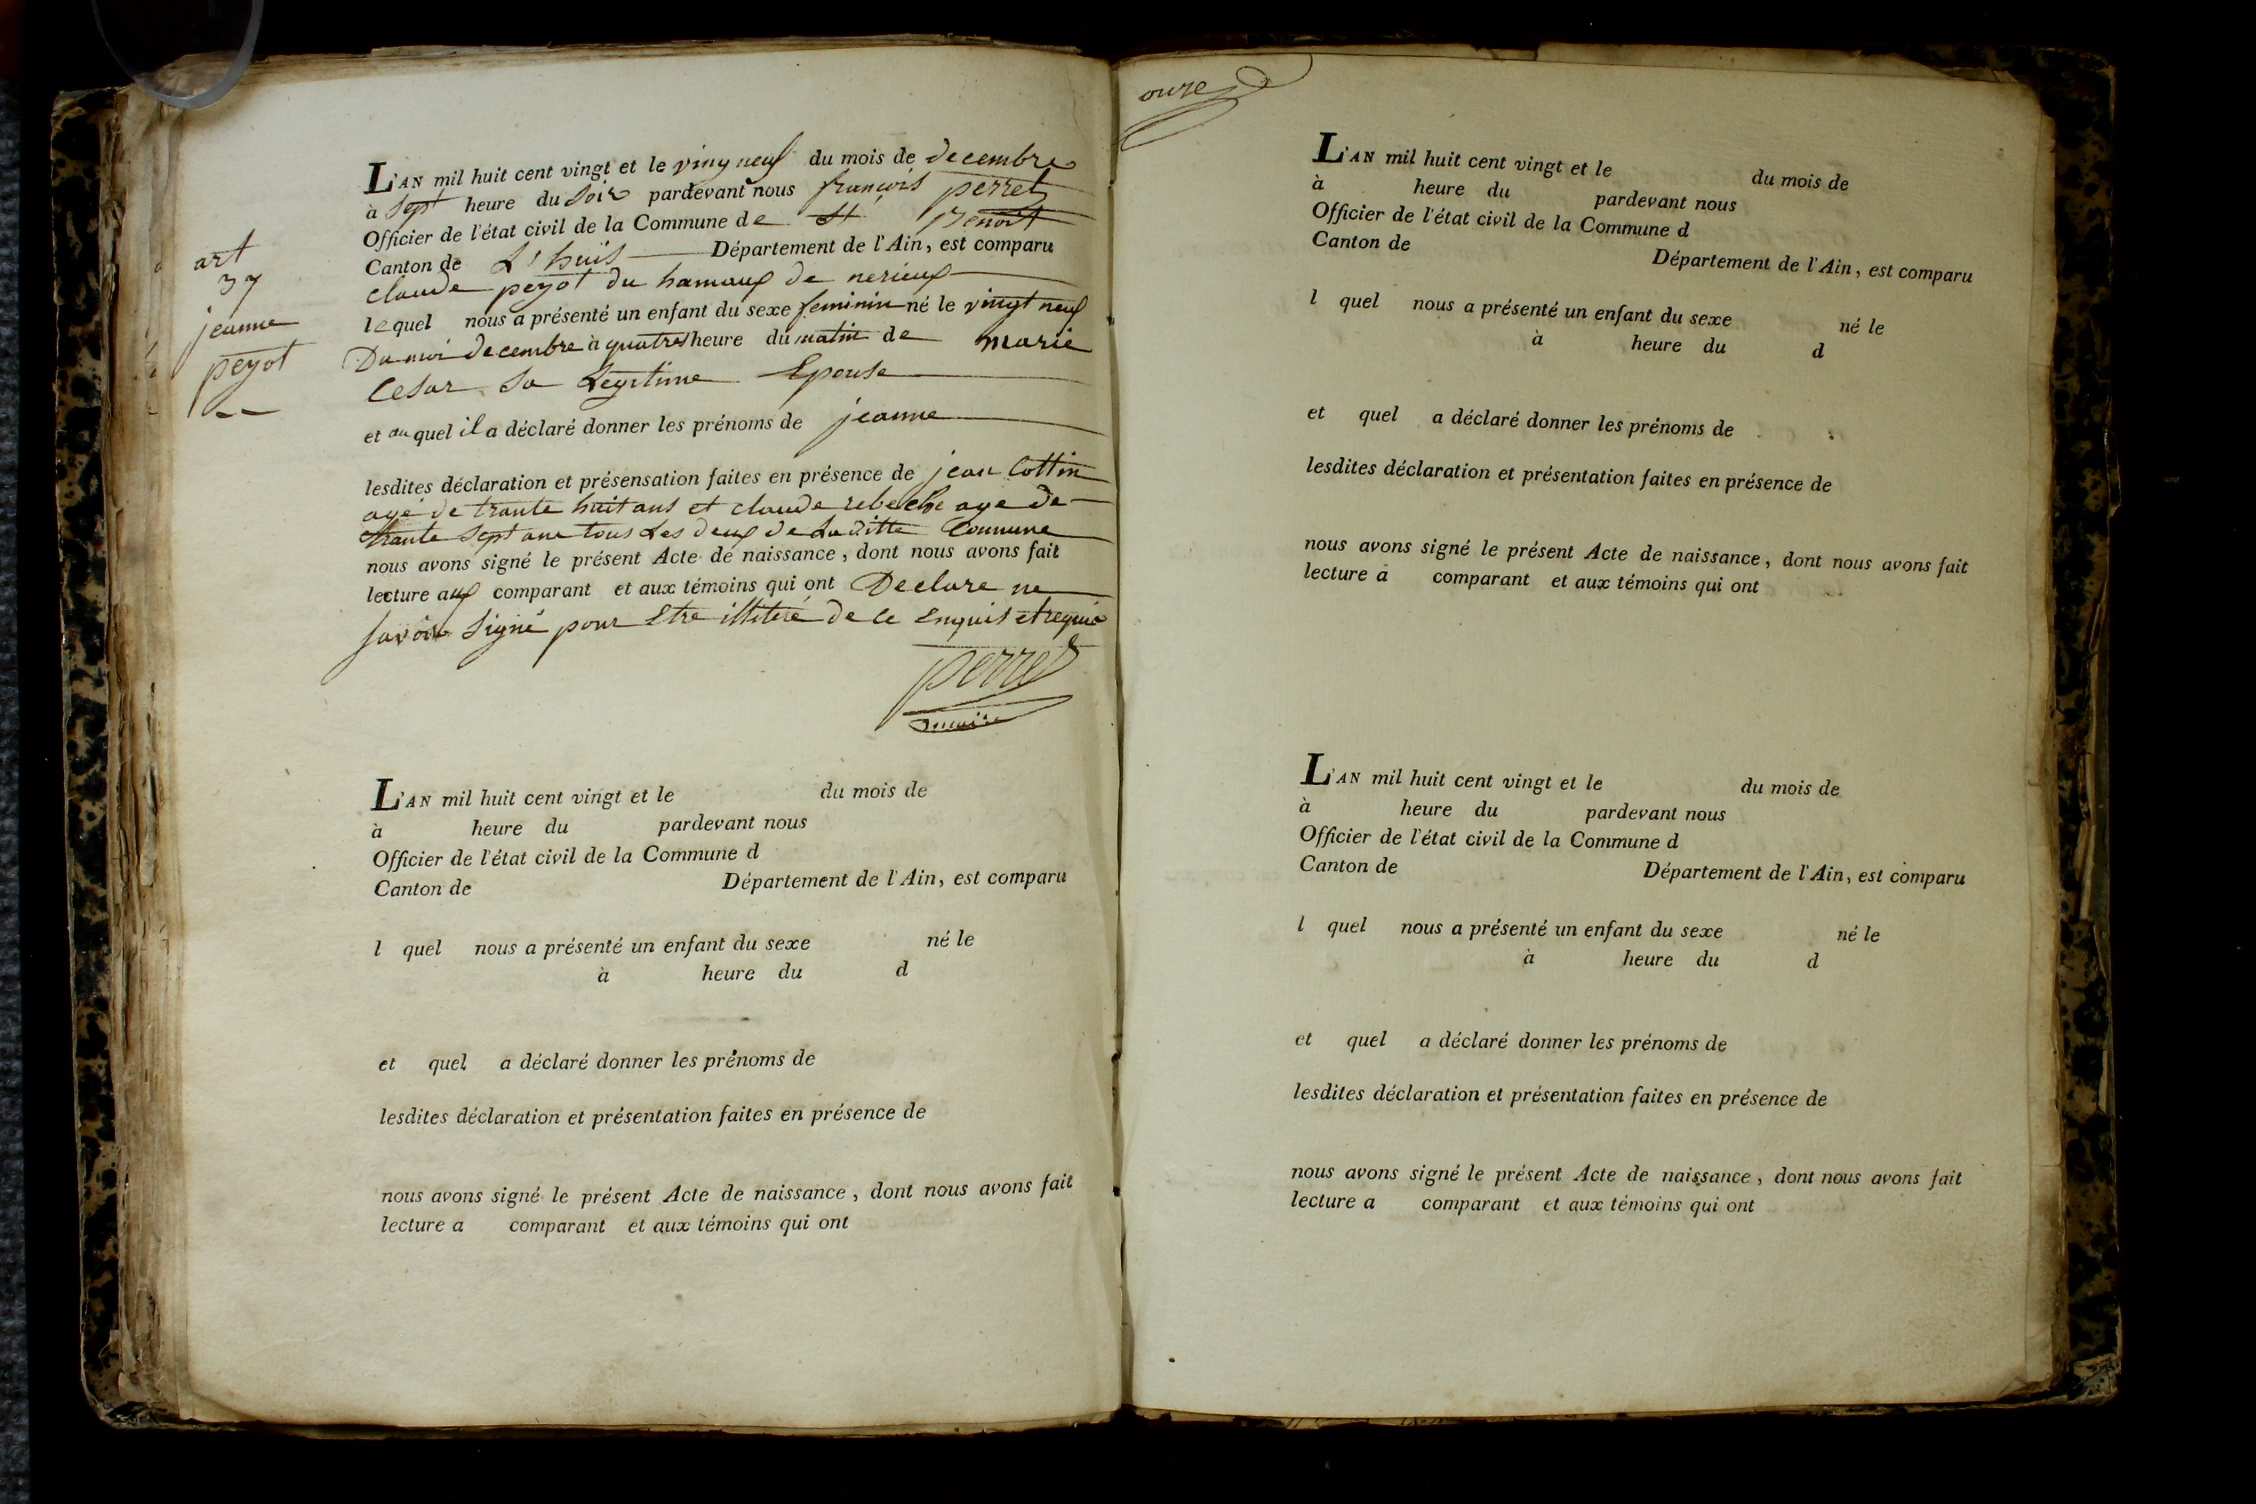 art
37
jeanne
peyot
L'AN mil huit cent vingt et le ving neuf du mois de decembre
à sept heure du soir pardevant nous françois perret
Officier de l'état civil de la Commune de St Benoit
Canton de L'huis Département de l'Ain, est comparu
claude peyot du hamaux de nerieux
lequel nous a présenté un enfant du sexe feminin né le vingt neuf
Du moi decembre à quatres heure du matin de marie
Cesar sa Legitime Epouse
et au quel il a déclaré donner les prénoms de jeanne
lesdites déclaration et présensation faites en présence de jean Cottin
agé de trante huit ans et claude rebeche age de
trante sept ans tous Les deux de Laditte Commune
nous avons signé le présent Acte de naissance, dont nous avons fait
lecture aux comparant et aux témoins qui ont Declare ne
savoir signé pour Etre illiteré de ce Enquis et requis
perret
maire
L'AN mil huit cent vingt et le du mois de
à heure du pardevant nous
Officier de l'état civil de la Commune d
Canton de Département de l'Ain, est comparu
l quel nous a présenté un enfant du sexe né le
à heure du d
et quel a déclaré donner les prénoms de
lesdites déclaration et présentation faites en présence de
nous avons signé le présent Acte de naissance, dont nous avons fait
lecture a comparant et aux témoins qui ont
onze
L'AN mil huit cent vingt et le du mois de
à heure du pardevant nous
Officier de l'état civil de la Commune d
Canton de Département de l'Ain, est comparu
l quel nous a présenté un enfant du sexe né le
à heure du d
et quel a déclaré donner les prénoms de
lesdites déclaration et présentation faites en présence de
nous avons signé le présent Acte de naissance, dont nous avons fait
lecture a comparant et aux témoins qui ont
L'AN mil huit cent vingt et le du mois de
à heure du pardevant nous
Officier de l'état civil de la Commune d
Canton de Département de l'Ain, est comparu
l quel nous a présenté un enfant du sexe né le
à heure du d
et quel a déclaré donner les prénoms de
lesdites déclaration et présentation faites en présence de
nous avons signé le présent Acte de naissance, dont nous avons fait
lecture a comparant et aux témoins qui ont